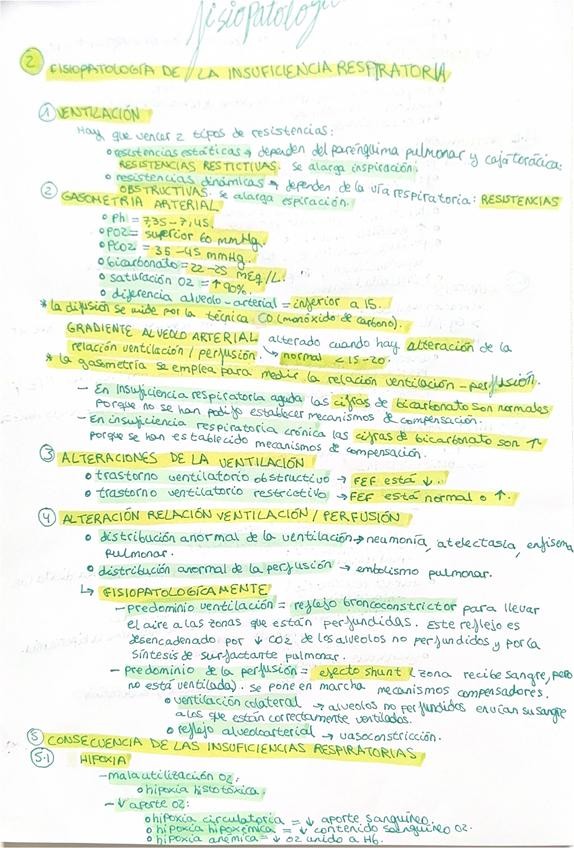 fisiopatología
2 FISIOPATOLOGÍA DE LA INSUFICIENCIA RESPIRATORIA
1 VENTILACIÓN
Hay que vencer 2 tipos de resistencias:
o resistencias estáticas → dependen del parénquima pulmonar y caja torácica:
RESISTENCIAS RESTICTIVAS: se alarga inspiración.
o resistencias dinámicas → dependen de la vía respiratoria: RESISTENCIAS
OBSTRUCTIVAS: se alarga espiración.
2 GASOMETRIA ARTERIAL
o Ph = 7,35-7,45.
o PO2 = superior 60 mmHg.
o PCO2 = 35-45 mmHg.
o bicarbonato = 22-25 mEq/L.
o saturación O2 = ↑ 90%.
o diferencia alveolo-arterial = inferior a 15.
* la difusión se mide por la técnica CO (monóxido de carbono).
GRADIENTE ALVEOLO ARTERIAL alterado cuando hay alteración de la
relación ventilación / perfusión. ↳ normal < 15-20.
* la gasometría se emplea para medir la relación ventilación-perfusión.
- En Insuficiencia respiratoria aguda las cifras de bicarbonato son normales
porque no se han podijo establecer mecanismos de compensación.
- En insuficiencia respiratoria crónica las cifras de bicarbonato son ↑
porque se han establecido mecanismos de compensación.
3 ALTERACIONES DE LA VENTILACIÓN
o trastorno ventilatorio obstructivo → FEF está ↓.
o trastorno ventilatorio restrictivo → FEF está normal o ↑.
4 ALTERACIÓN RELACIÓN VENTILACIÓN / PERFUSIÓN
o distribución anormal de la ventilación → neumonía, atelectasia, enfisema
pulmonar.
o distribución anormal de la perfusión → embolismo pulmonar.
↳ FISIOPATOLOGÍCAMENTE
- predominio ventilación = reflejo broncoconstrictor para llevar
el aire a las zonas que están perfundidas. Este reflejo es
desencadenado por ↓ CO2 de los alveolos no perfundidos y por la
síntesis de surfactante pulmonar.
- predominio de la perfusión = efecto shunt (zona recibe sangre, pero
no está ventilada). se pone en marcha mecanismos compensadores.
o ventilación colateral → alveolos no perfundidos envían su sangre
a los que están correctamente ventilados.
o reflejo alveoloarterial → vasoconstricción.
5 CONSECUENCIA DE LAS INSUFICIENCIAS RESPIRATORIAS
5.1 HIPOXIA
- mala utilización O2:
o hipoxia histotóxica.
- ↓ aporte O2:
o hipoxia circulatoria = ↓ aporte sanguíneo.
o hipoxia hipoxémica = ↓ contenido sanguíneo O2.
o hipoxia anémica = ↓ O2 unido a Hb.